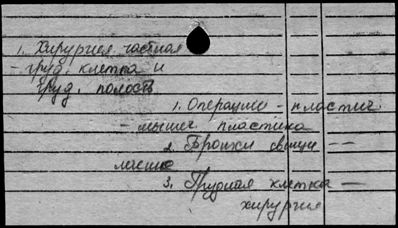 1. Хирургия частная
- груд. клетка и
груд. полость
1. Операции - пластич
- мышеч. пластика
2. Бронхи свищи —
3. Грудная клетка —
хирургия